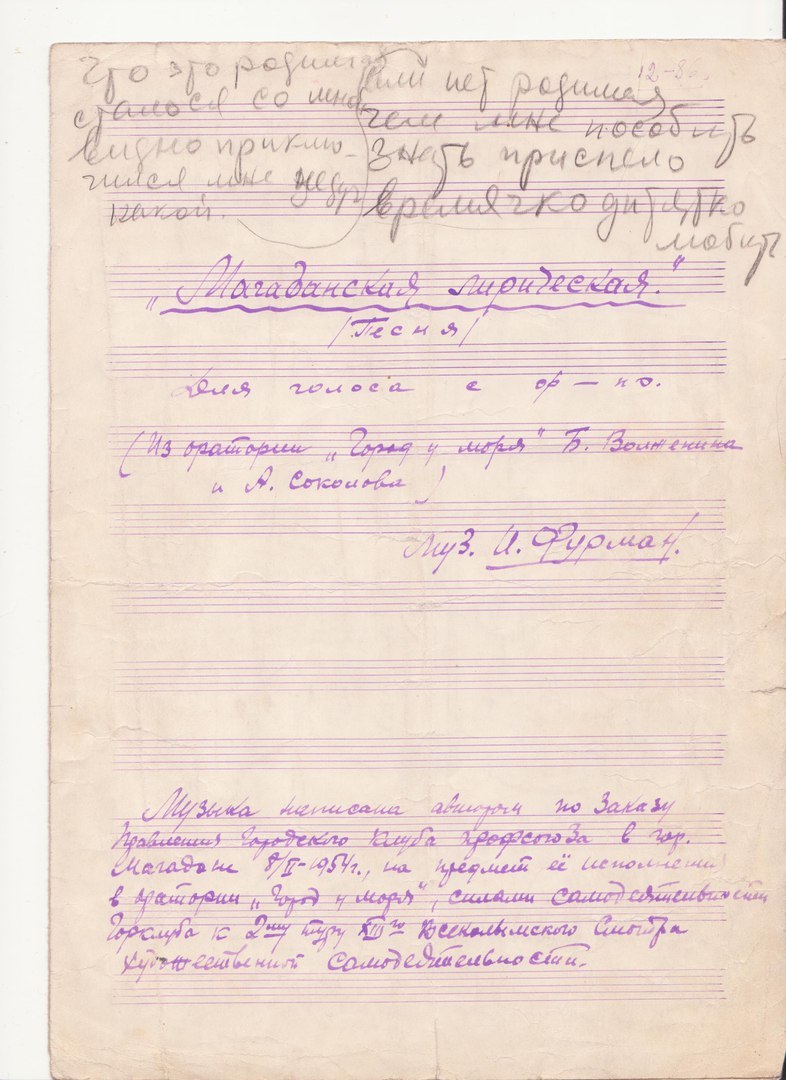 Что это родимая
сталося со мной
видно приклю-
чился мне недуг
какой.
или нет родимая
чем мне пособить
знать приспело
времячко дитятко
любить
12-86.
„Магаданская лирическая."
/Песня/
Для голоса с ф-но.
(Из оратории „Город у моря" Б. Волженина
и А. Соколова)
Муз. И. Фурман.
Музыка написана автором по заказу
Правления Городского клуба профсоюза в гор.
Магадане 8/II-1954г., на предмет её исполнения
в оратории „Город у моря", силами самодеятельности
Горклуба к 2му туру XIIIго Всеколымского Смотра
художественной самодеятельности.